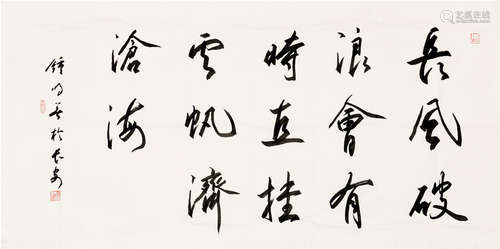 長風破
浪會有
時直挂
雲帆濟
滄海
鍾明善於長安